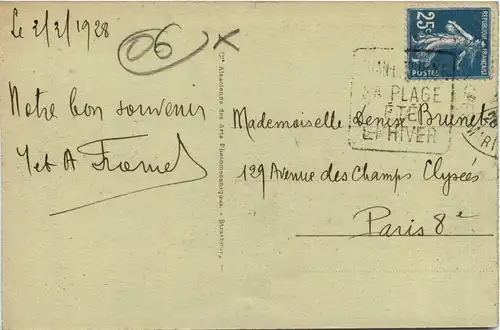 Le 2/2/1928
06
Notre bon souvenir
Y et A
Cie Alsacienne des Arts Photomécaniques. - Strasbourg
25c
REPUBLIQUE FRANÇAISE
POSTES
SA PLAGE
ÉTÉ
ET HIVER
Mademoiselle Denise Brunet
129 Avenue des Champs Elysées
Paris 8e